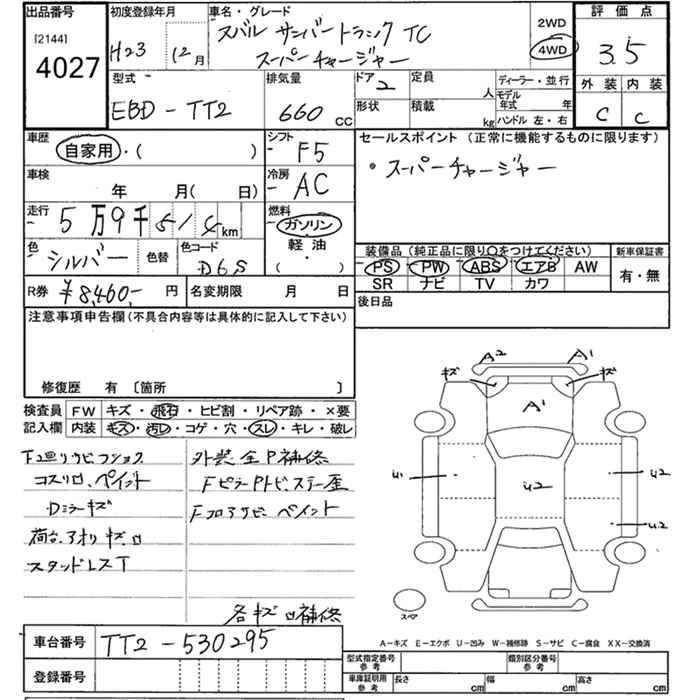 出品番号
[2144]
4027
初度登録年月
H23 12月
車名・グレード
スバル サンバートラック TC
スーパーチャージャー
2WD
4WD
評価点
3.5
外装 内装
C C
型式
EBD-TT2
排気量
660 CC
ドア 2
定員 人
形状
積載 kg
ディーラー・並行
モデル年式 年
ハンドル 左・右
車歴
自家用・( )
シフト
F5
車検
年 月( 日)
冷房
AC
走行
5万9千 km
燃料
ガソリン
軽・油
( )
色
シルバー
色替
色コード
D6S
R券 ¥8,460- 円
名変期限 月 日
セールスポイント (正常に機能するものに限ります)
・スーパーチャージャー
装備品 (純正品に限り○をつけてください)
PS PW ABS エアB AW
SR ナビ TV カワ
新車保証書
有・無
後日品
注意事項申告欄(不具合内容等は具体的に記入して下さい)
修復歴 有 〔箇所 〕
検査員 FW キズ・飛石・ヒビ割・リペア跡・×要
記入欄 内装 キズ・汚レ・コゲ・穴・スレ・キレ・破レ
コスリロ、ペイント
Dミラーキズ
荷台、アオリ キズ ロ
スタッドレスT
外装 全P補修
各キズ ロ補修
A2 A1
キズ キズ
A1
U2
U2
U2
スペア
A-キズ E-エクボ U-凹み W-補修跡 S-サビ C-腐食 XX-交換済
車台番号 TT2-530295
登録番号
型式指定番号 参考
類別区分番号 参考
車庫証明用 参考
長さ cm 幅 cm 高さ cm